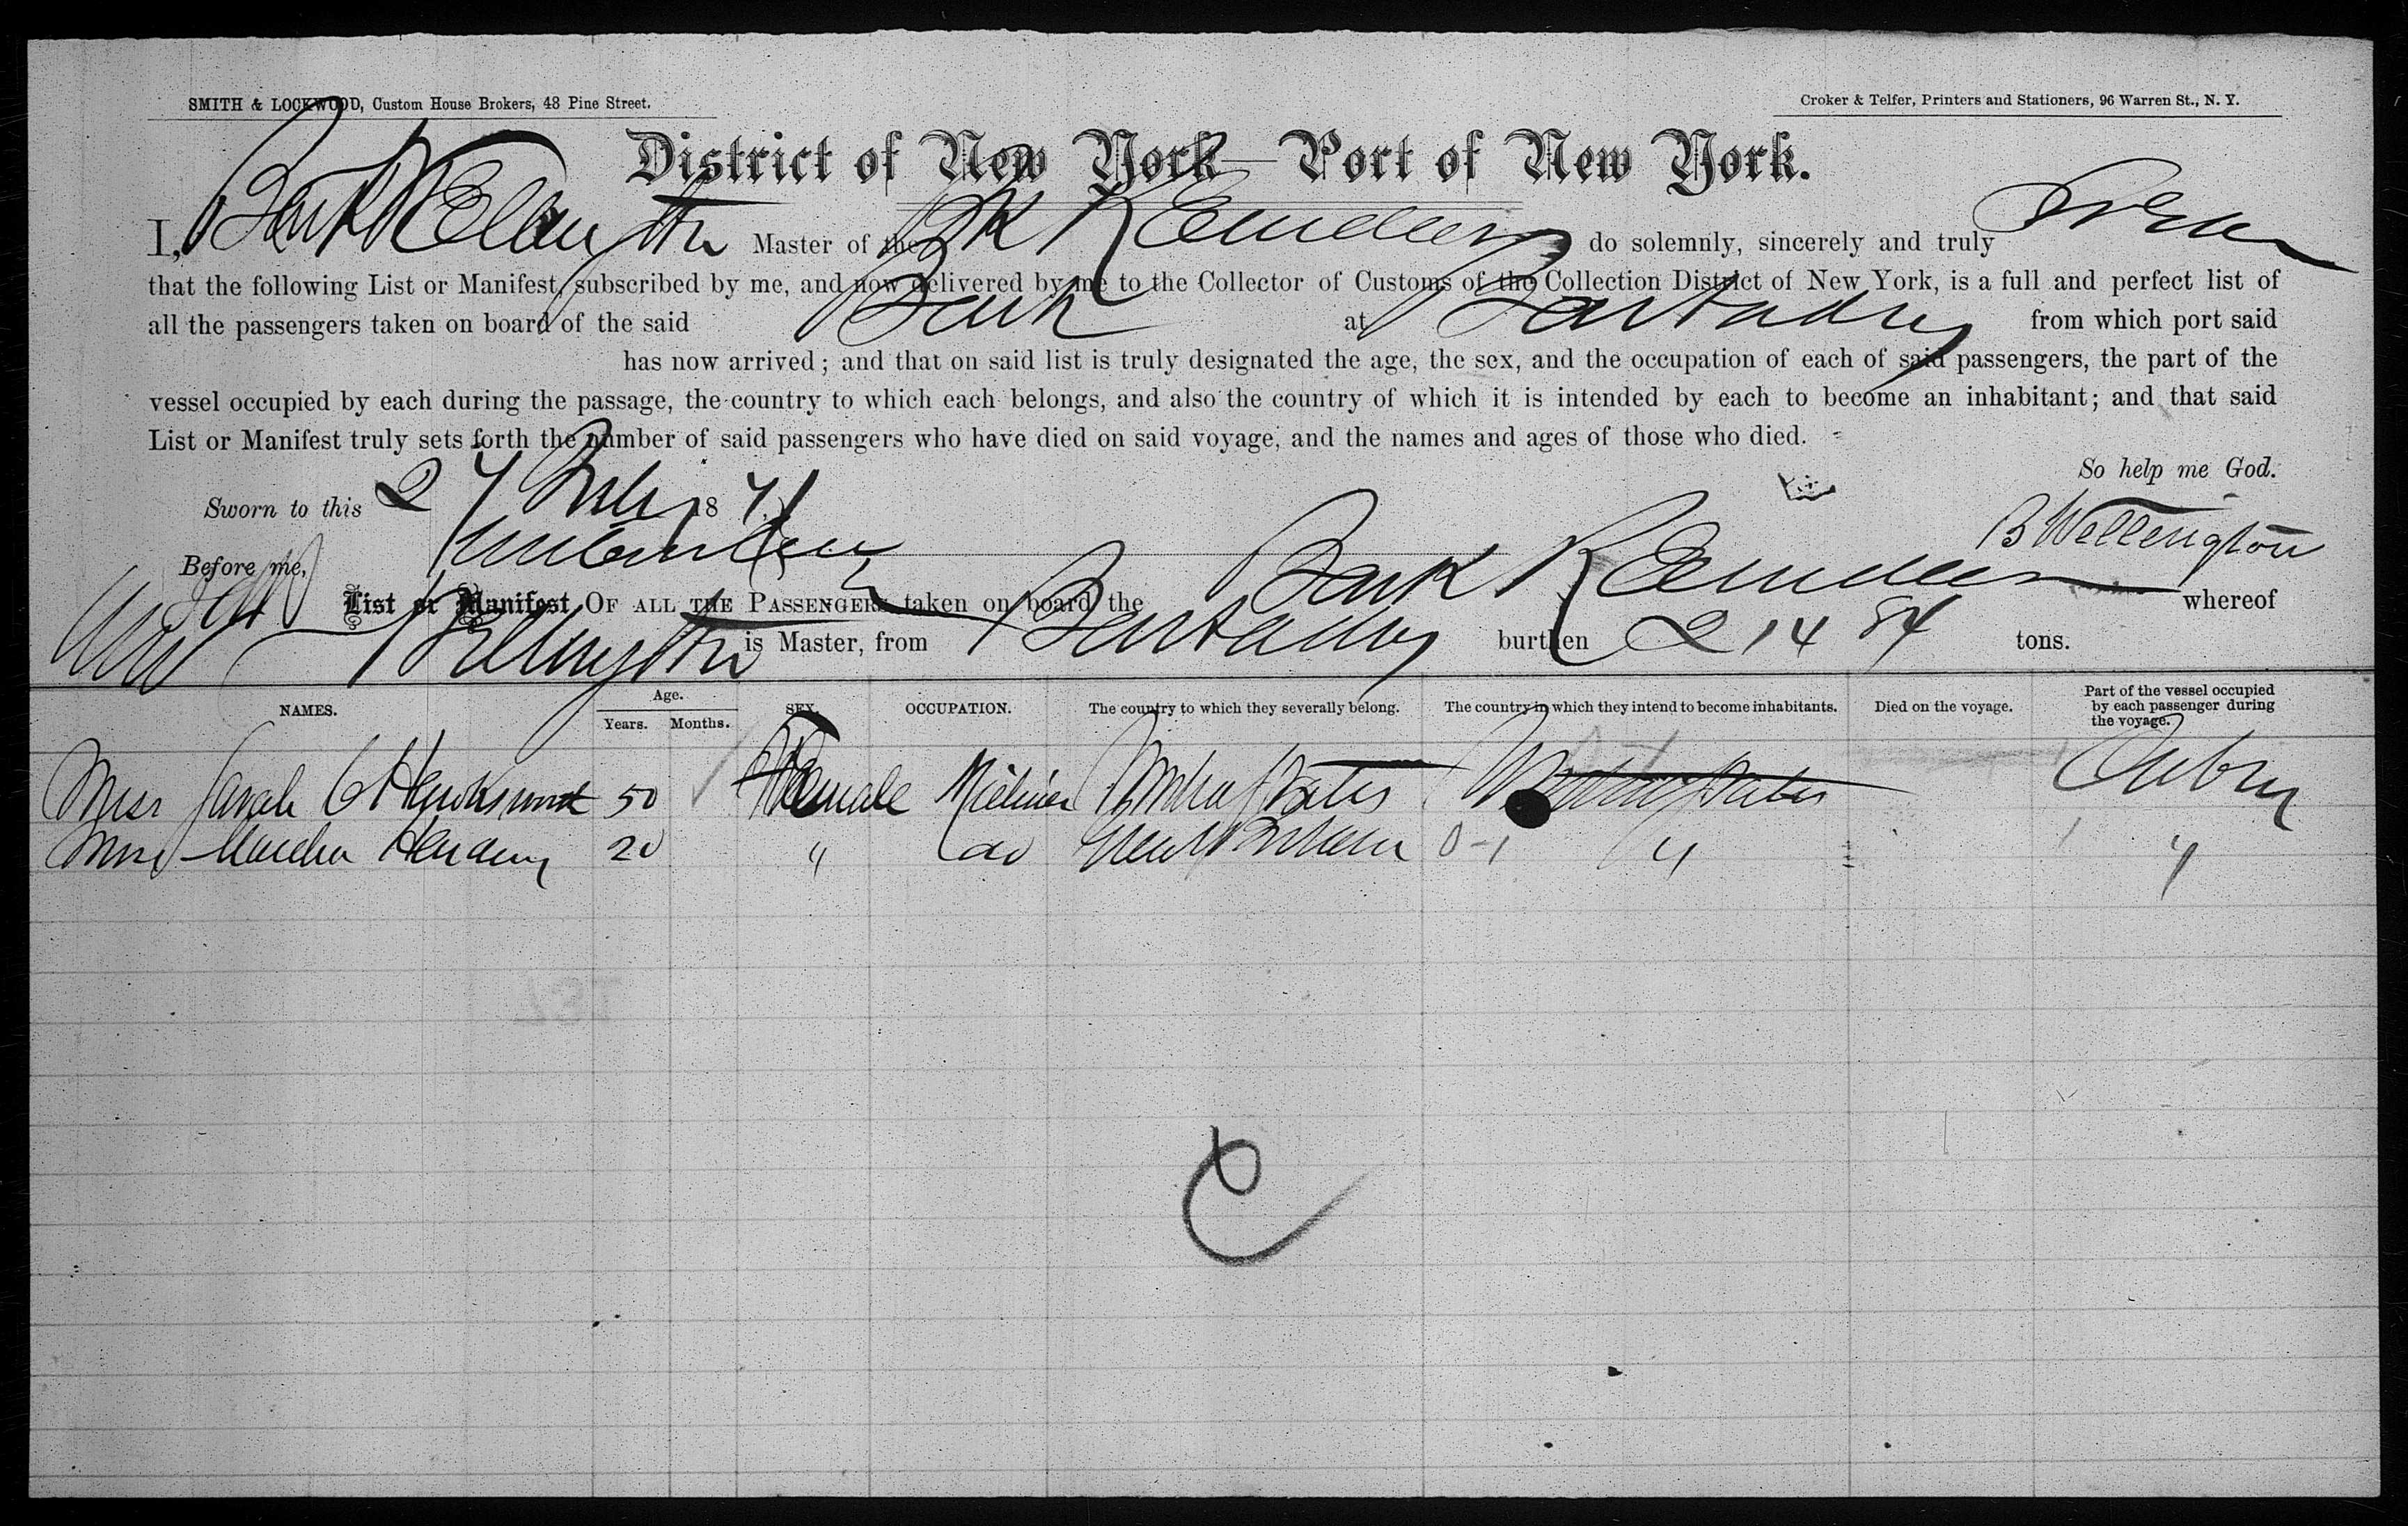 SMITH & LOCKWOOD, Custom House Brokers, 48 Pine Street.
Croker & Telfer, Printers and Stationers, 96 Warren St., N. Y.
District of New York—Port of New York.
I, Wellington Master of the Bk Reindeer do solemnly, sincerely and truly swear
that the following List or Manifest, subscribed by me, and now delivered by me to the Collector of Customs of the Collection District of New York, is a full and perfect list of
all the passengers taken on board of the said Bark at Barbados from which port said
has now arrived; and that on said list is truly designated the age, the sex, and the occupation of each of said passengers, the part of the
vessel occupied by each during the passage, the country to which each belongs, and also the country of which it is intended by each to become an inhabitant; and that said
List or Manifest truly sets forth the number of said passengers who have died on said voyage, and the names and ages of those who died.
So help me God.
Sworn to this 27 July 1871
B Wellington
Before me,
List or Manifest OF ALL THE PASSENGERS taken on board the Bark Reindeer whereof
Wellington is Master, from Barbados burthen 214 84 tons.
NAMES. Age. Years. Months. SEX. OCCUPATION. The country to which they severally belong. The country in which they intend to become inhabitants. Died on the voyage. Part of the vessel occupied by each passenger during the voyage.
Miss Sarah C 50 Female Milliner United States United States Cabin
Miss Martha 20 " do Great Britain 0-1 " "